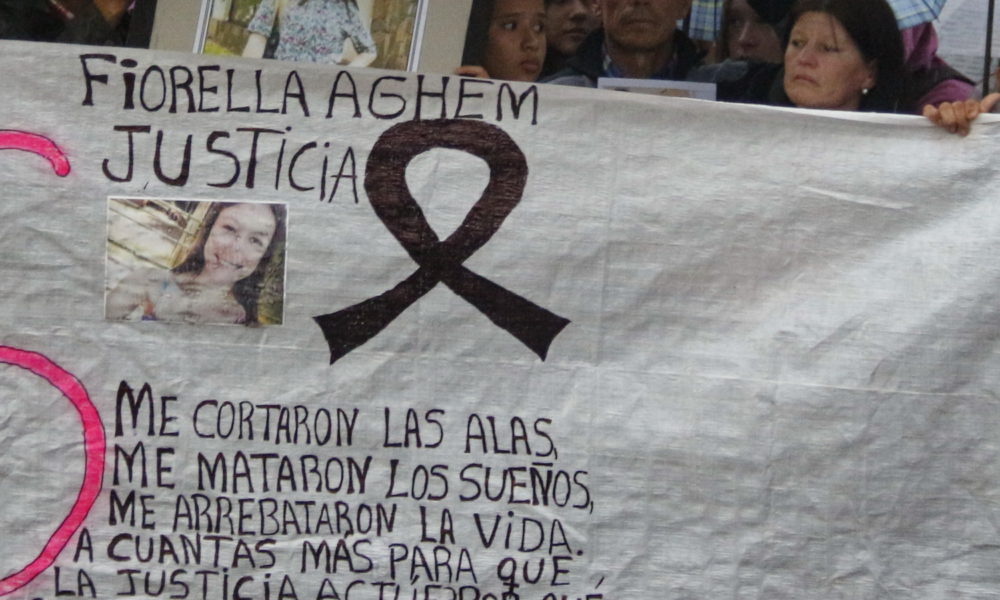 FiORELLA AGHEM
JUSTiCiA
ME CORTARON LAS ALAS,
ME MATARON LOS SUEÑOS,
ME ARREBATARON LA ViDA.
A CUANTAS MÁS PARA QUE
LA JUSTiCiA